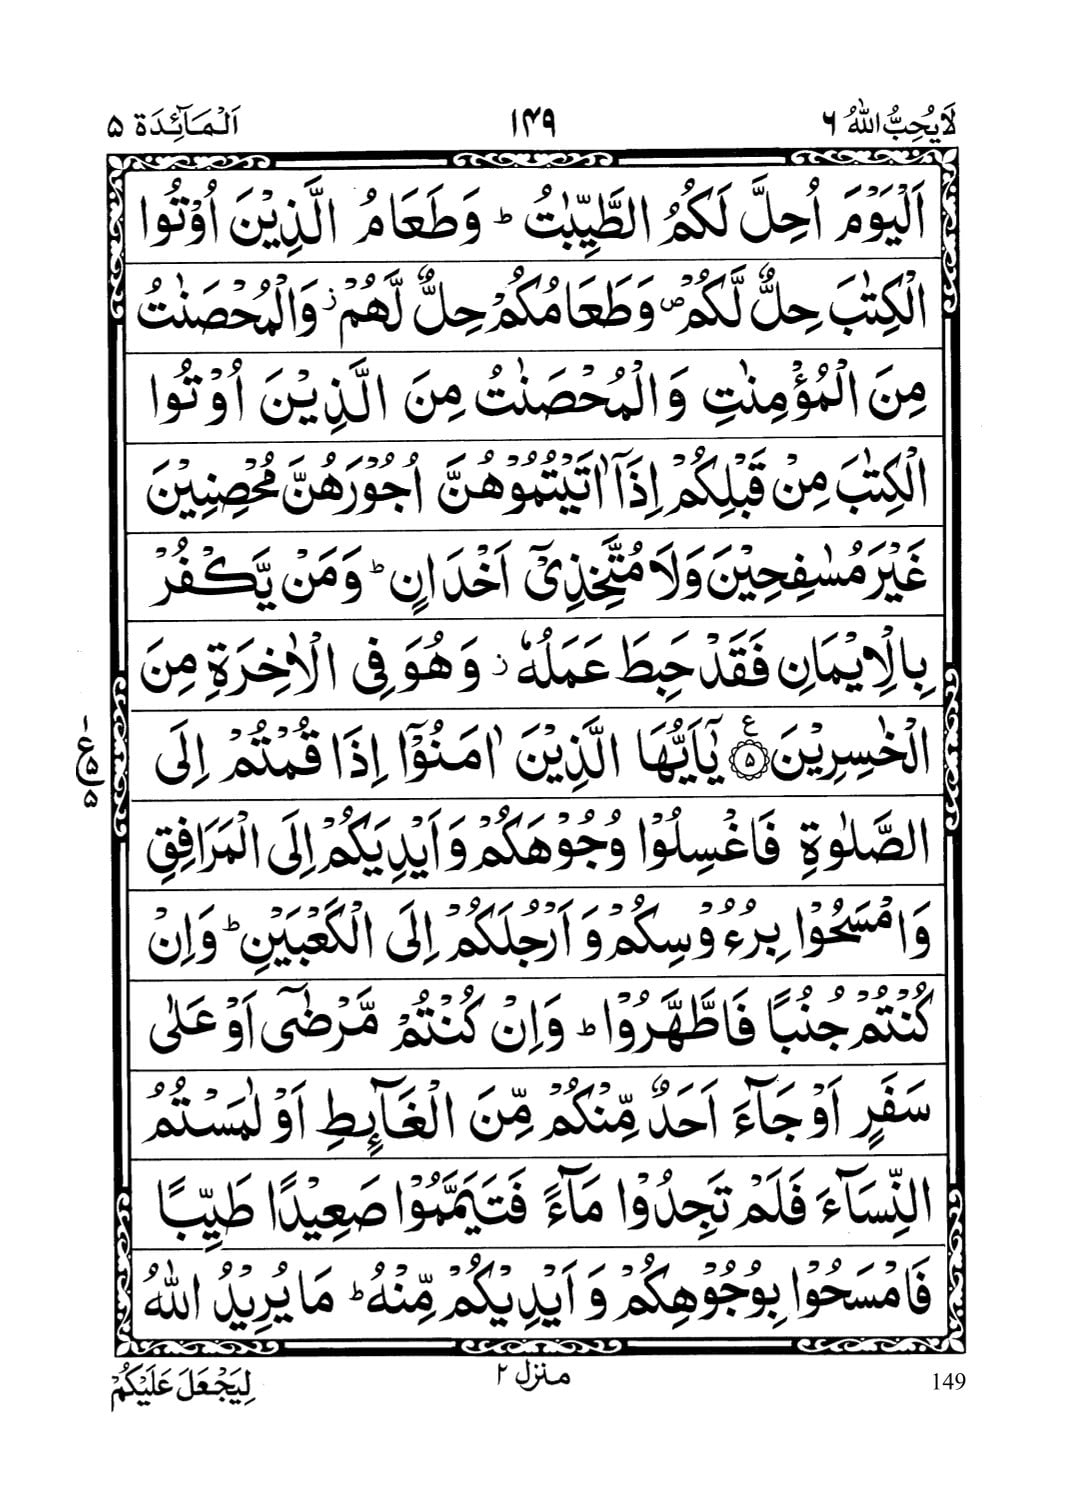 لَا يُحِبُّ اللّٰهُ ٦
١٤٩
اَلْمَآئِدَة ٥
اَلْيَوْمَ اُحِلَّ لَكُمُ الطَّيِّبٰتُ ؕ وَطَعَامُ الَّذِيْنَ اُوْتُوا
الْكِتٰبَ حِلٌّ لَّكُمْ ۪ وَطَعَامُكُمْ حِلٌّ لَّهُمْ ؗ وَالْمُحْصَنٰتُ
مِنَ الْمُؤْمِنٰتِ وَالْمُحْصَنٰتُ مِنَ الَّذِيْنَ اُوْتُوا
الْكِتٰبَ مِنْ قَبْلِكُمْ اِذَآ اٰتَيْتُمُوْهُنَّ اُجُوْرَهُنَّ مُحْصِنِيْنَ
غَيْرَ مُسٰفِحِيْنَ وَلَا مُتَّخِذِيْٓ اَخْدَانٍ ؕ وَمَنْ يَّكْفُرْ
بِالْاِيْمَانِ فَقَدْ حَبِطَ عَمَلُهٗ ؗ وَهُوَ فِى الْاٰخِرَةِ مِنَ
الْخٰسِرِيْنَ ۝٥ ع يٰٓاَيُّهَا الَّذِيْنَ اٰمَنُوْٓا اِذَا قُمْتُمْ اِلَى
الصَّلٰوةِ فَاغْسِلُوْا وُجُوْهَكُمْ وَاَيْدِيَكُمْ اِلَى الْمَرَافِقِ
وَامْسَحُوْا بِرُءُوْسِكُمْ وَاَرْجُلَكُمْ اِلَى الْكَعْبَيْنِ ؕ وَاِنْ
كُنْتُمْ جُنُبًا فَاطَّهَّرُوْا ؕ وَاِنْ كُنْتُمْ مَّرْضٰٓى اَوْ عَلٰى
سَفَرٍ اَوْ جَآءَ اَحَدٌ مِّنْكُمْ مِّنَ الْغَآئِطِ اَوْ لٰمَسْتُمُ
النِّسَآءَ فَلَمْ تَجِدُوْا مَآءً فَتَيَمَّمُوْا صَعِيْدًا طَيِّبًا
فَامْسَحُوْا بِوُجُوْهِكُمْ وَاَيْدِيْكُمْ مِّنْهُ ؕ مَا يُرِيْدُ اللّٰهُ
١
ع
٥
٥
149
منزل ٢
لِيَجْعَلَ عَلَيْكُمْ